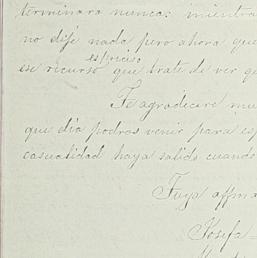 terminara nunca: mientra
no dije nada, pero ahora que
es preciso
ese recurso que trate de ver q
Te agradecere mu
que dia podras venir para es
casualidad haya salido cuando
Tuya affma
Josefa